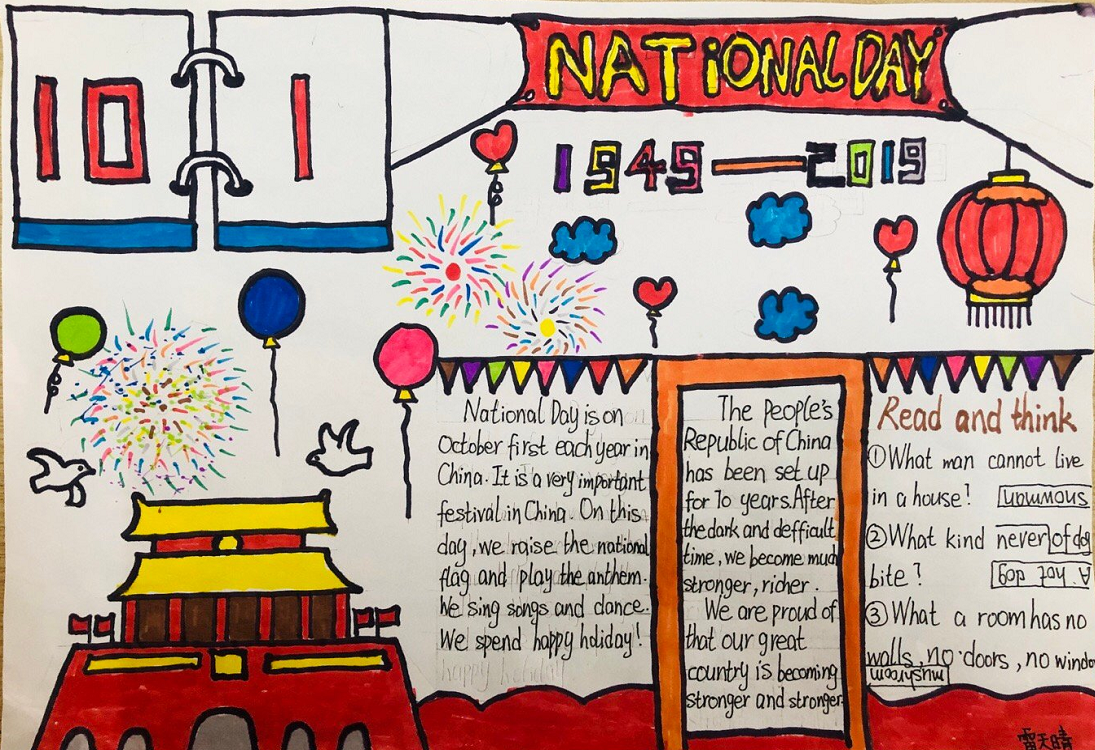 10 1
NATIONAL DAY
1949—2019
National Day is on
October first each year in
China. It is a very important
festival in China. On this
day, we raise the national
flag and play the anthem.
We sing songs and dance.
We spend happy holiday!
The People's
Republic of China
has been set up
for 70 years. After
the dark and defficult
time, we become much
stronger, richer.
We are proud of
that our great
country is becoming
stronger and stronger.
Read and think
①What man cannot live
in a house? snowman
②What kind never of dog
bite? A hot dog
③What a room has no
walls, no doors, no window
mushroom